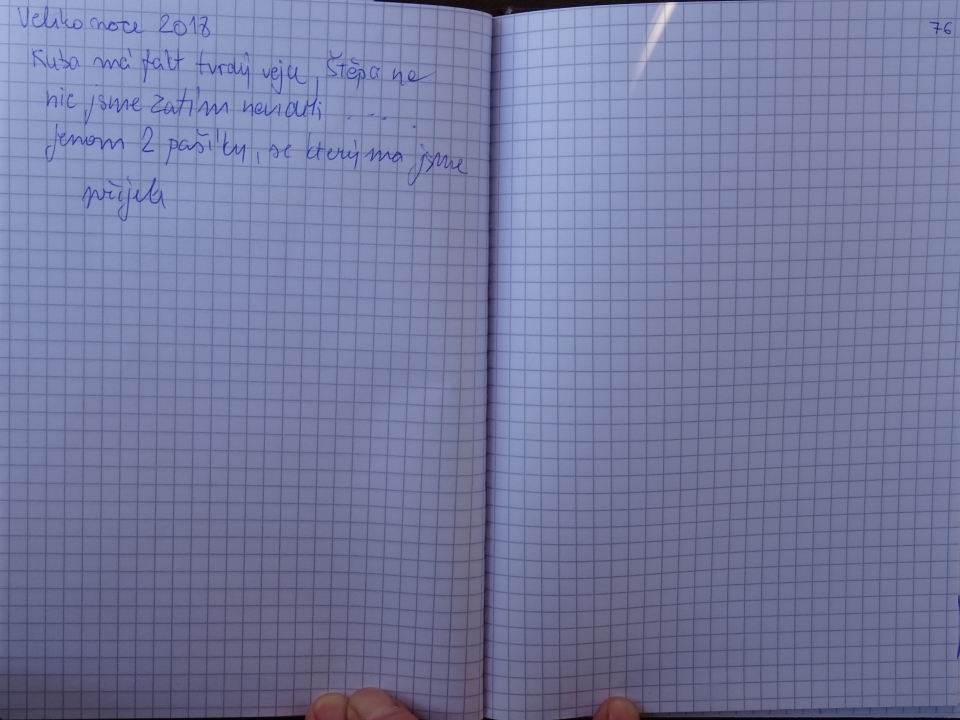 Velikonoce 2018
76
Kuba má fakt tvrdý vejce, Štěpa ne
nic jsme zatím neviděli ....
jenom 2 pašíky, se kterýma jsme
přijeli